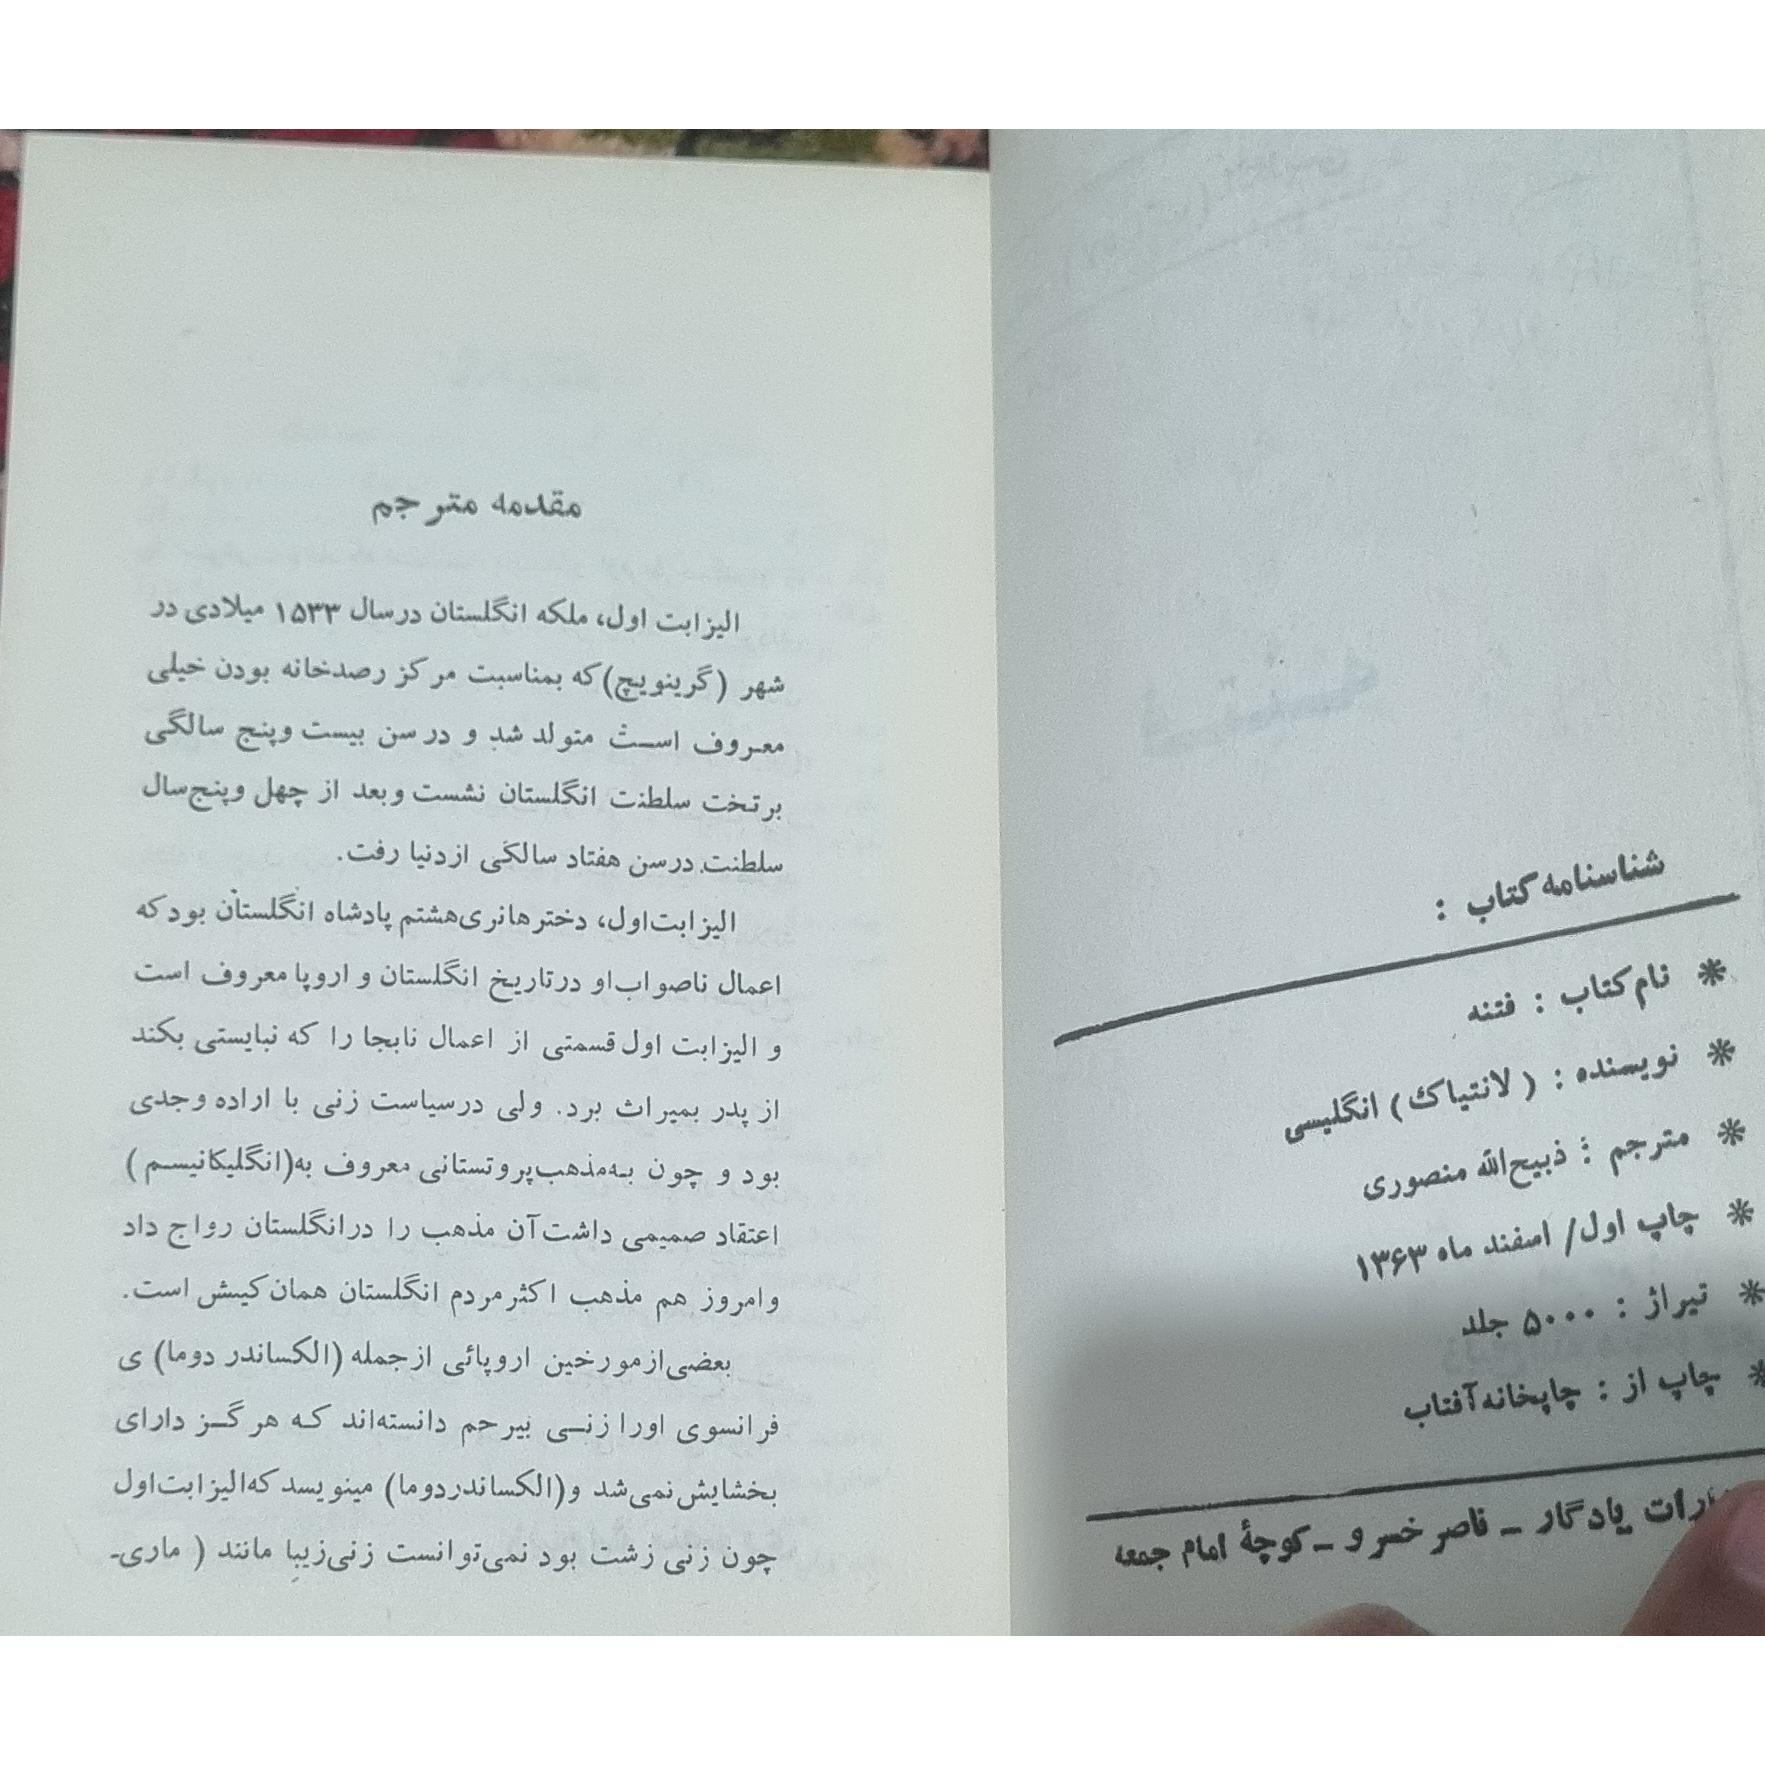 شناسنامه کتاب :
* نام کتاب : فتنه
* نویسنده : (لانتیاک) انگلیسی
* مترجم : ذبیح‌الله منصوری
* چاپ اول/ اسفند ماه ۱۳۶۳
* تیراژ : ۵۰۰۰ جلد
* چاپ از : چاپخانه آفتاب
یادگار ـ ناصر خسرو ـ کوچهٔ امام جمعه
مقدمه مترجم
الیزابت اول، ملکه انگلستان درسال ۱۵۳۳ میلادی در
شهر (گرینویچ) که بمناسبت مرکز رصدخانه بودن خیلی
معروف است متولد شد و در سن بیست و پنج سالگی
بر تخت سلطنت انگلستان نشست و بعد از چهل و پنج‌سال
سلطنت درسن هفتاد سالگی از دنیا رفت.
الیزابت‌اول، دختر هانری‌هشتم پادشاه انگلستان بود که
اعمال ناصواب‌او در تاریخ انگلستان و اروپا معروف است
و الیزابت اول قسمتی از اعمال نابجا را که نبایستی بکند
از پدر بمیراث برد. ولی درسیاست زنی با اراده و جدی
بود و چون به‌مذهب‌پروتستانی معروف به(انگلیکانیسم)
اعتقاد صمیمی داشت‌آن مذهب را درانگلستان رواج داد
و امروز هم مذهب اکثر مردم انگلستان همان کیش است.
بعضی‌از مورخین اروپائی از جمله (الکساندر دوما) ی
فرانسوی اورا زنی بیرحم دانسته‌اند که هرگز دارای
بخشایش نمی‌شد و(الکساندردوما) مینویسد که‌الیزابت‌اول
چون زنی زشت بود نمی‌توانست زنی‌زیبا مانند ( ماری‌ـ